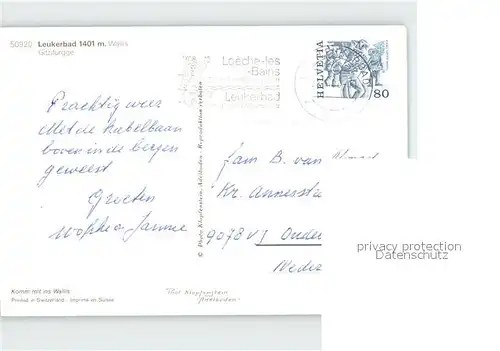 50920 Leukerbad 1401 m. Wallis
Gitzifurgge
Loèche-les
-Bains
Leukerbad
HELVETIA
80
Prachtig weer
Met de kabelbaan
boven in de bergen
geweest
Groeten
Fam B. van
Kr. Annessta
9078
Neder
© Photo Klopfenstein, Adelboden - Reproduktion verboten
privacy protection
Datenschutz
Komm mit ins Wallis
Printed in Switzerland - Imprimé en Suisse
Phot Klopfenstein
Adelboden